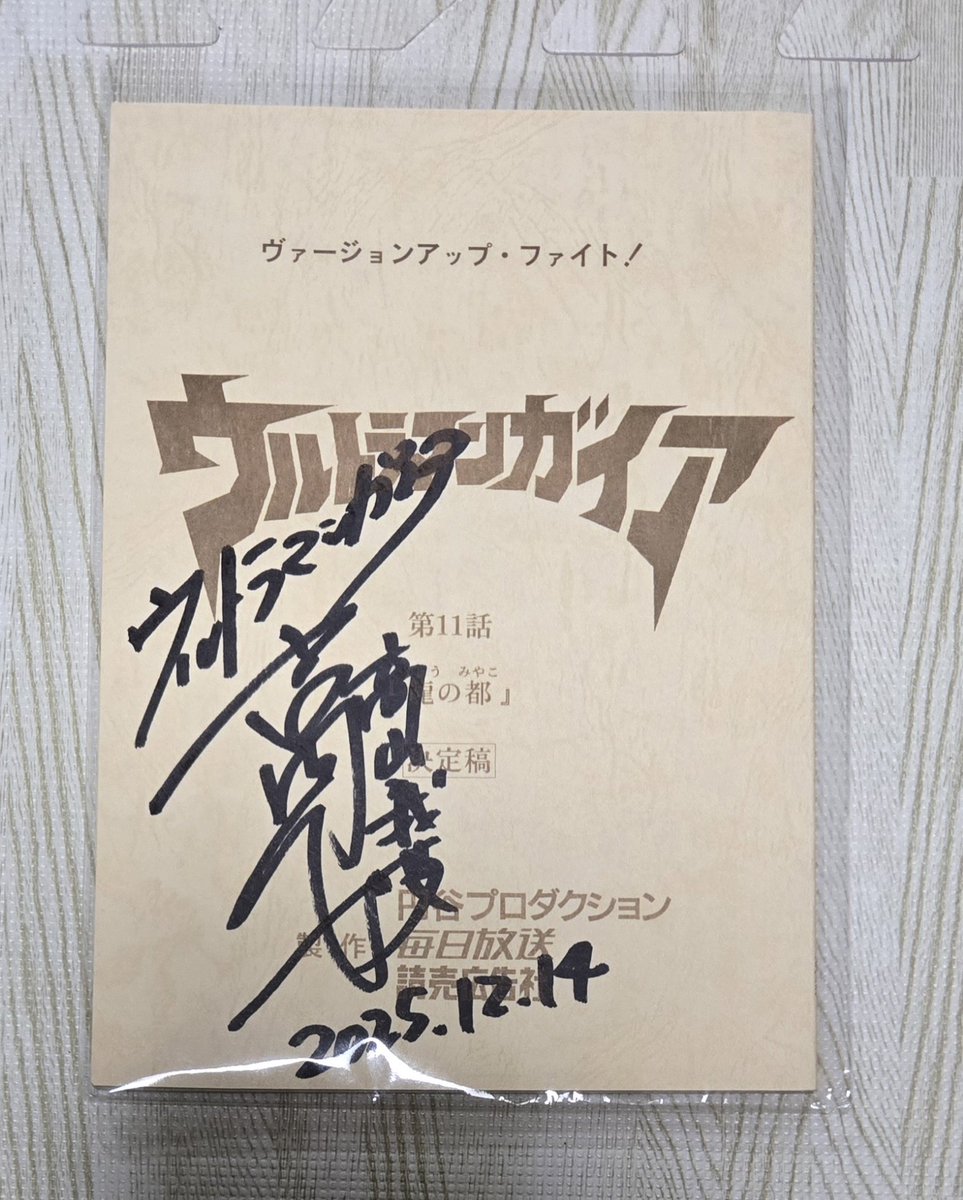 ヴァージョンアップ・ファイト!
ウルトラマンガイア
ウルトラマンガイア
第11話
う みやこ
龍の都 』
決定稿
高山我夢
円谷プロダクション
製 作 毎日放送
読売広告社
2025.12.14